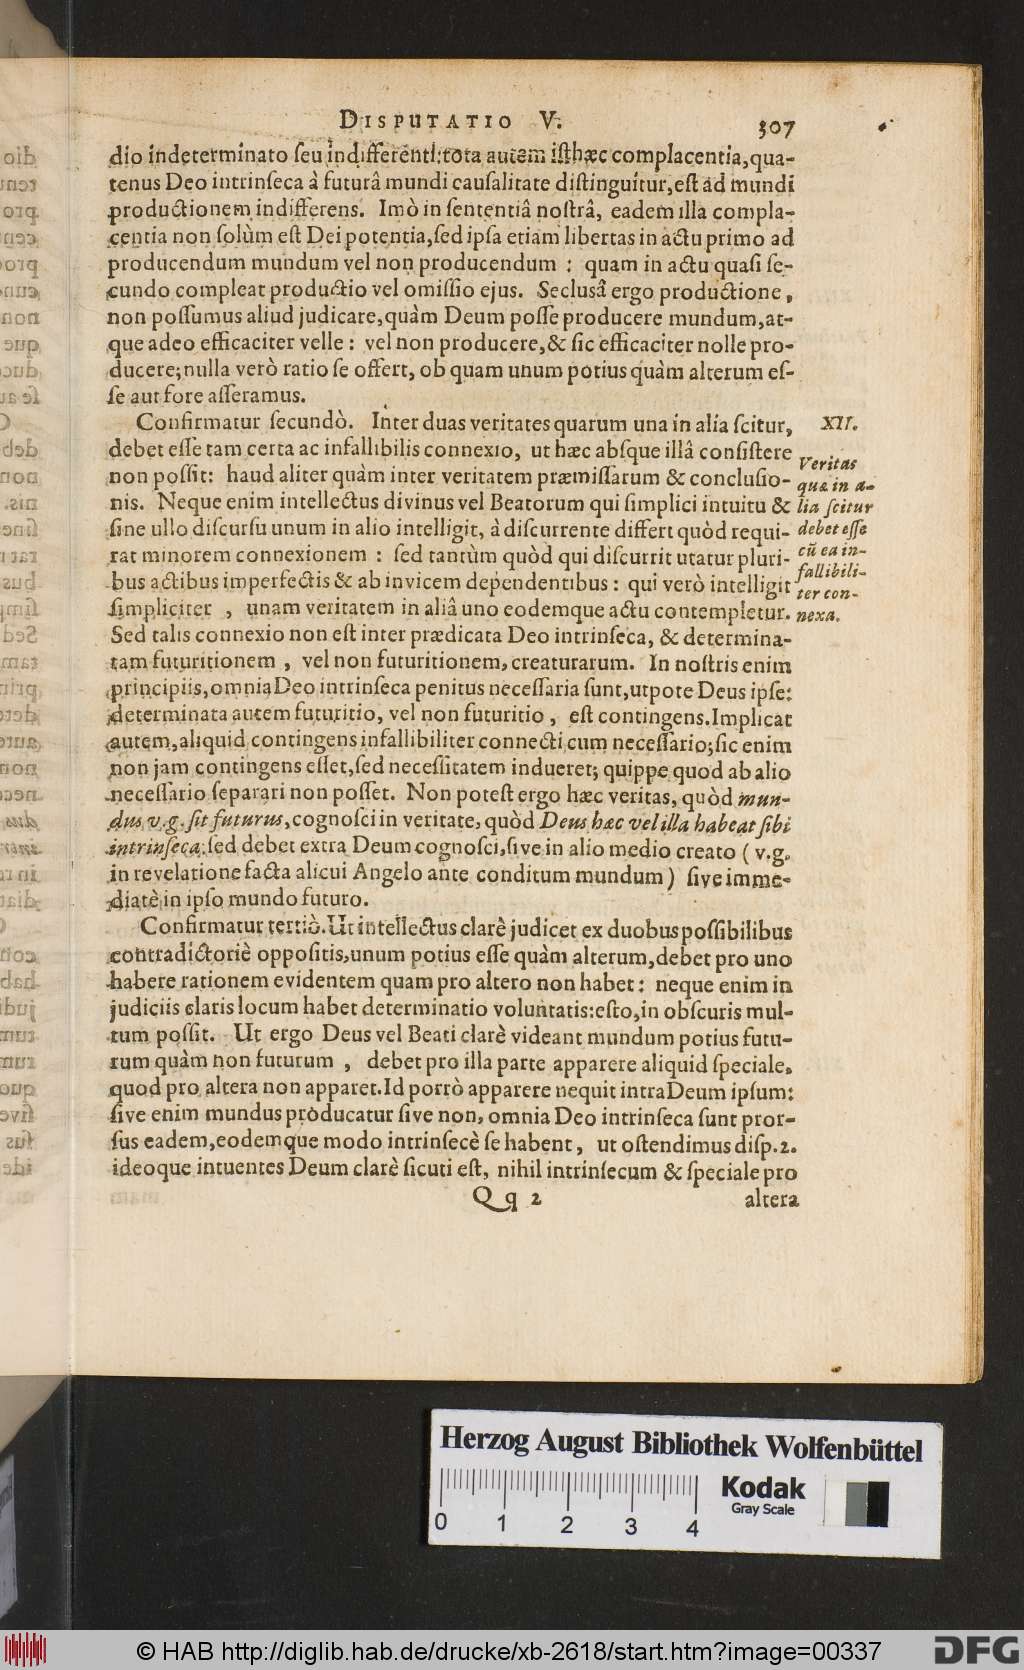 DISPUTATIO V. 307
dio indeterminato seu indifferenti: tota autem isthæc complacentia, qua-
tenus Deo intrinseca à futurâ mundi causalitate distinguitur, est ad mundi
productionem indifferens. Imò in sententiâ nostrâ, eadem illa compla-
centia non solùm est Dei potentia, sed ipsa etiam libertas in actu primo ad
producendum mundum vel non producendum : quam in actu quasi se-
cundo compleat productio vel omissio ejus. Seclusâ ergo productione,
non possumus aliud judicare, quàm Deum posse producere mundum, at-
que adeo efficaciter velle : vel non producere, & sic efficaciter nolle pro-
ducere; nulla verò ratio se offert, ob quam unum potius quàm alterum es-
se aut fore asseramus.
Confirmatur secundò. Inter duas veritates quarum una in alia scitur,
debet esse tam certa ac infallibilis connexio, ut hæc absque illâ consistere
non possit: haud aliter quàm inter veritatem præmissarum & conclusio-
nis. Neque enim intellectus divinus vel Beatorum qui simplici intuitu &
sine ullo discursu unum in alio intelligit, à discurrente differt quòd requi-
rat minorem connexionem : sed tantùm quòd qui discurrit utatur pluri-
bus actibus imperfectis & ab invicem dependentibus : qui verò intelligit
simpliciter , unam veritatem in aliâ uno eodemque actu contempletur.
Sed talis connexio non est inter prædicata Deo intrinseca, & determina-
tam futuritionem , vel non futuritionem, creaturarum. In nostris enim
principiis, omnia Deo intrinseca penitus necessaria sunt, utpote Deus ipse:
determinata autem futuritio, vel non futuritio , est contingens. Implicat
autem, aliquid contingens infallibiliter connecti cum necessario; sic enim
non jam contingens esset, sed necessitatem indueret; quippe quod ab alio
necessario separari non posset. Non potest ergo hæc veritas, quòd mun-
dus v.g. sit futurus, cognosci in veritate, quòd Deus hæc vel illa habeat sibi
intrinseca: sed debet extra Deum cognosci, sive in alio medio creato ( v.g.
in revelatione facta alicui Angelo ante conditum mundum ) sive imme-
diatè in ipso mundo futuro.
Confirmatur tertiò. Ut intellectus clarè judicet ex duobus possibilibus
contradictoriè oppositis, unum potius esse quàm alterum, debet pro uno
habere rationem evidentem quam pro altero non habet : neque enim in
judiciis claris locum habet determinatio voluntatis: esto, in obscuris mul-
tum possit. Ut ergo Deus vel Beati clarè videant mundum potius futu-
rum quàm non futurum , debet pro illa parte apparere aliquid speciale,
quod pro altera non apparet. Id porrò apparere nequit intra Deum ipsum:
sive enim mundus producatur sive non, omnia Deo intrinseca sunt pror-
sus eadem, eodemque modo intrinsecè se habent, ut ostendimus disp. 2.
ideoque intuentes Deum clarè sicuti est, nihil intrinsecum & speciale pro
Qq 2 altera
XII.
Veritas
quæ in a-
lia scitur
debet esse
cū ea in-
fallibili-
ter con-
nexa.
Herzog August Bibliothek Wolfenbüttel
0 1 2 3 4
Kodak
Gray Scale
© HAB http://diglib.hab.de/drucke/xb-2618/start.htm?image=00337
DFG